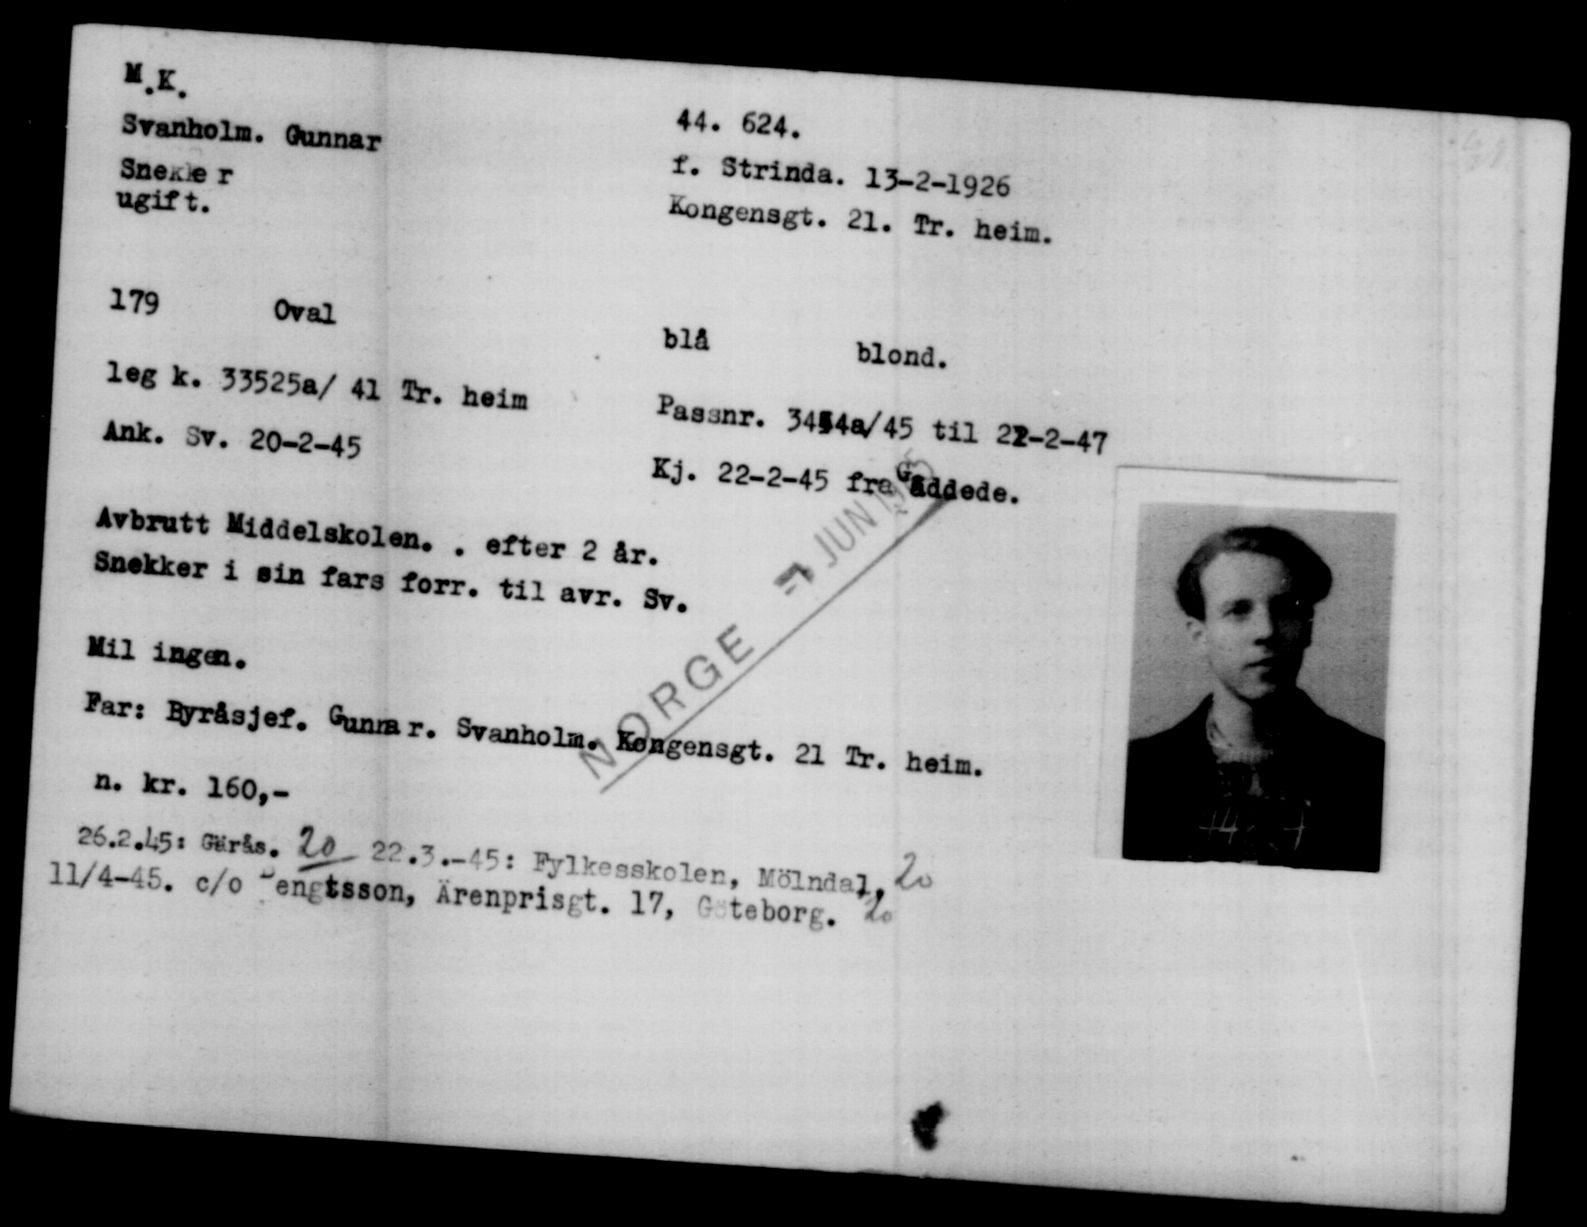 M.K.
Svanholm. Gunnar 44. 624.
Snekker f. Strinda. 13-2-1926
ugift. Kongensgt. 21. Tr. heim.
179 Oval blå blond.
leg k. 33525a/ 41 Tr. heim Passnr. 3454a/45 til 22-2-47
Ank. Sv. 20-2-45 Kj. 22-2-45 fra Gäddede.
Avbrutt Middelskolen. . efter 2 år.
Snekker i sin fars forr. til avr. Sv.
NORGE - 7 JUN 1945
Mil ingen.
Far: Byråsjef. Gunnar. Svanholm. Kongensgt. 21 Tr. heim.
n. kr. 160,-
26.2.45: Gärås. 20 22.3.-45: Fylkesskolen, Mölndal, 20
11/4-45. c/o Bengtsson, Ärenprisgt. 17, Göteborg. 20